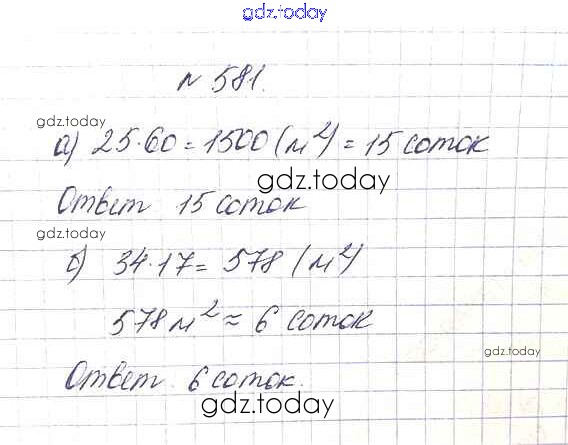 gdz.today
№ 581.
gdz.today
а) 25·60 = 1500 (м²) = 15 соток
gdz.today
Ответ 15 соток
gdz.today
б) 34·17 = 578 (м²)
578 м² ≈ 6 соток
gdz.today
Ответ 6 соток.
gdz.today